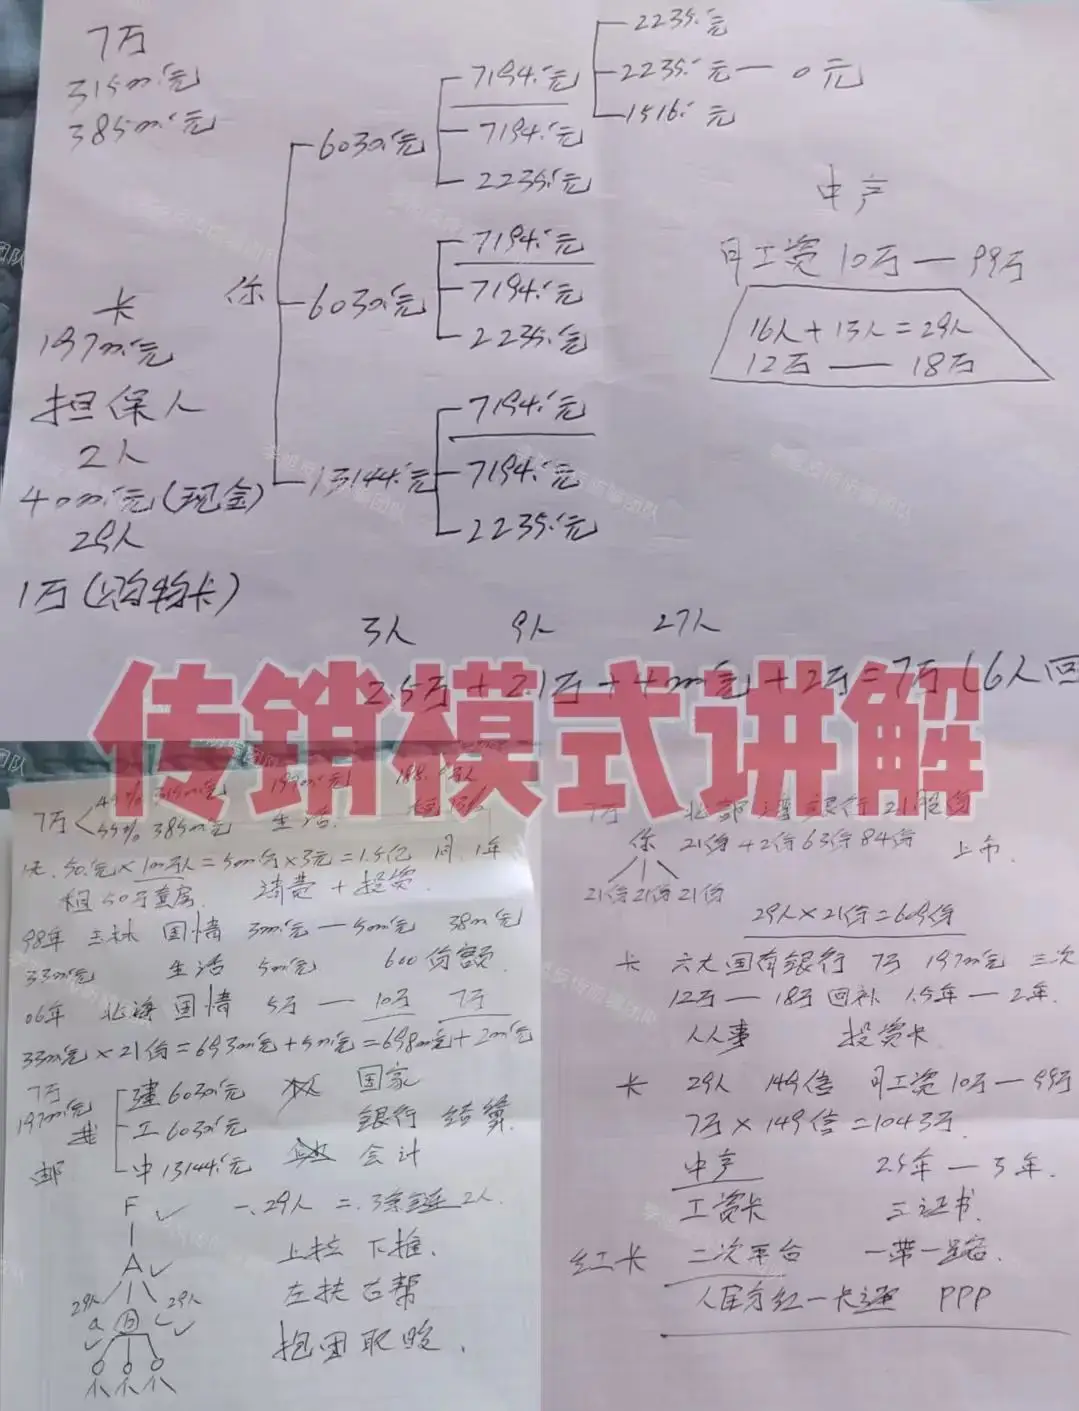 7万
315m元
385m元
卡
197m元
担保人
2人
40m元(现金)
29人
1万(购物卡)
你
603m元
7194元
7194元
2235元
2235元
2235元 — 0元
1516元
603m元
7194元
7194元
2235元
13144元
7194元
7194元
2235元
中产
月工资 10万 — 99万
16人+13人=29人
12万 — 18万
3人 9人 27人
2.5万+2.1万+4m元+2万=7万(6人回
传销模式讲解
7万
45% 315m元
55% 385m元
生活
50元×100万人=5m份×3元=1.5亿 1年
租50万套房 消费+投资
98年 玉林 国情 3m元—5m元 38m元
33m元 生活 5m元 600份额
06年 北海 国情 5万 — 10万 7万
33m元×21份=693m元+5m元=698m元+2m元
7万
197m元
邮
建603m元
工603m元
中13144元
国家
银行 结算
会计
F
A
29人 29人
a B c
一、29人 二、3条 2人
上拉 下推
左扶右帮
抱团取暖
7万 北部湾银行 21股份
你 21份 42份 63份 84份 上市
21份 21份 21份
29人×21份=609份
卡 六大国有银行 7万 197m元 三次
12万—18万 回补 1.5年—2年
人人事 投资卡
卡 29人 149倍 月工资 10万—99万
7万×149倍=1043万
中产 2.5年—3年
工资卡 三证书
红卡 二次平台 一带一路
一卡通 PPP